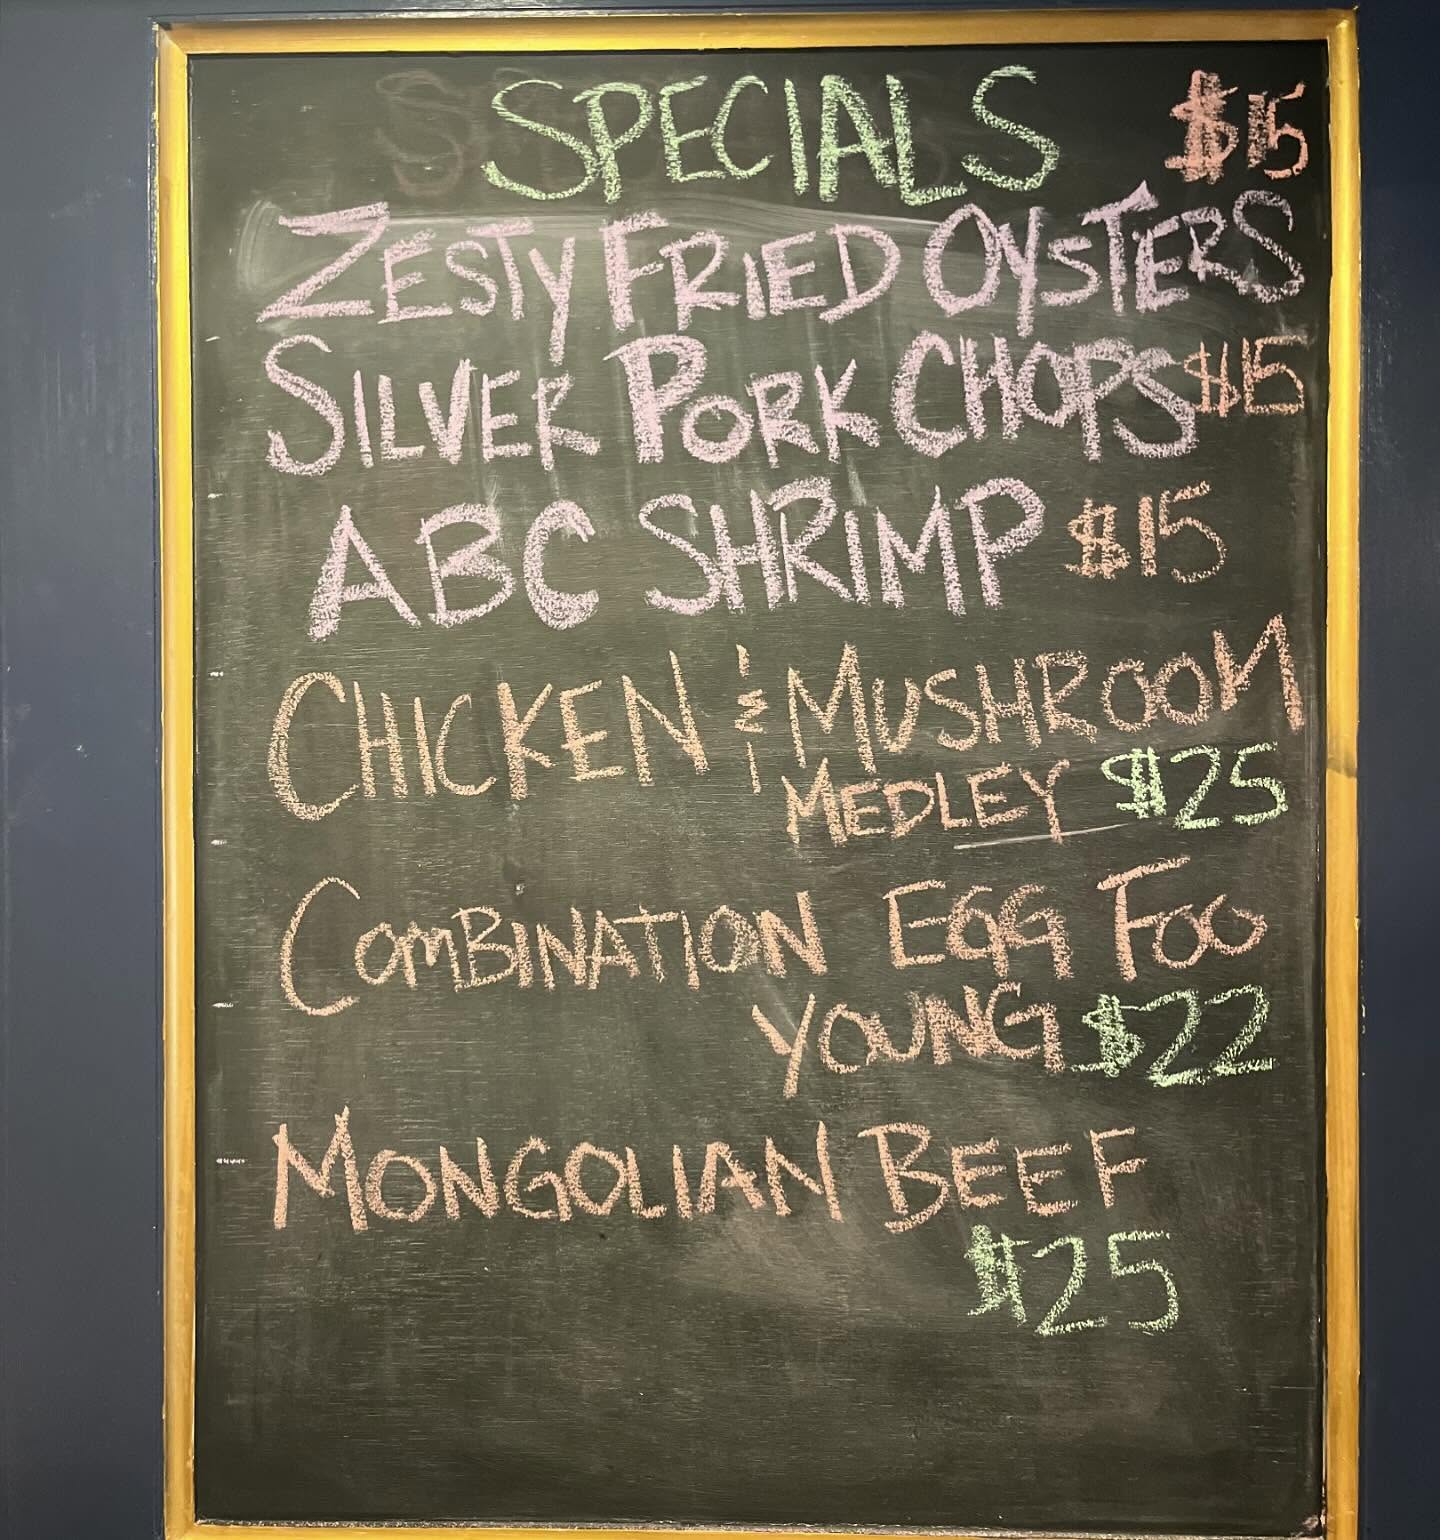 SPECIALS $15
ZESTY FRIED OYSTERS
SILVER PORK CHOPS $15
ABC SHRIMP $15
CHICKEN & MUSHROOM
MEDLEY $25
COMBINATION EGG FOO
YOUNG $22
MONGOLIAN BEEF
$25